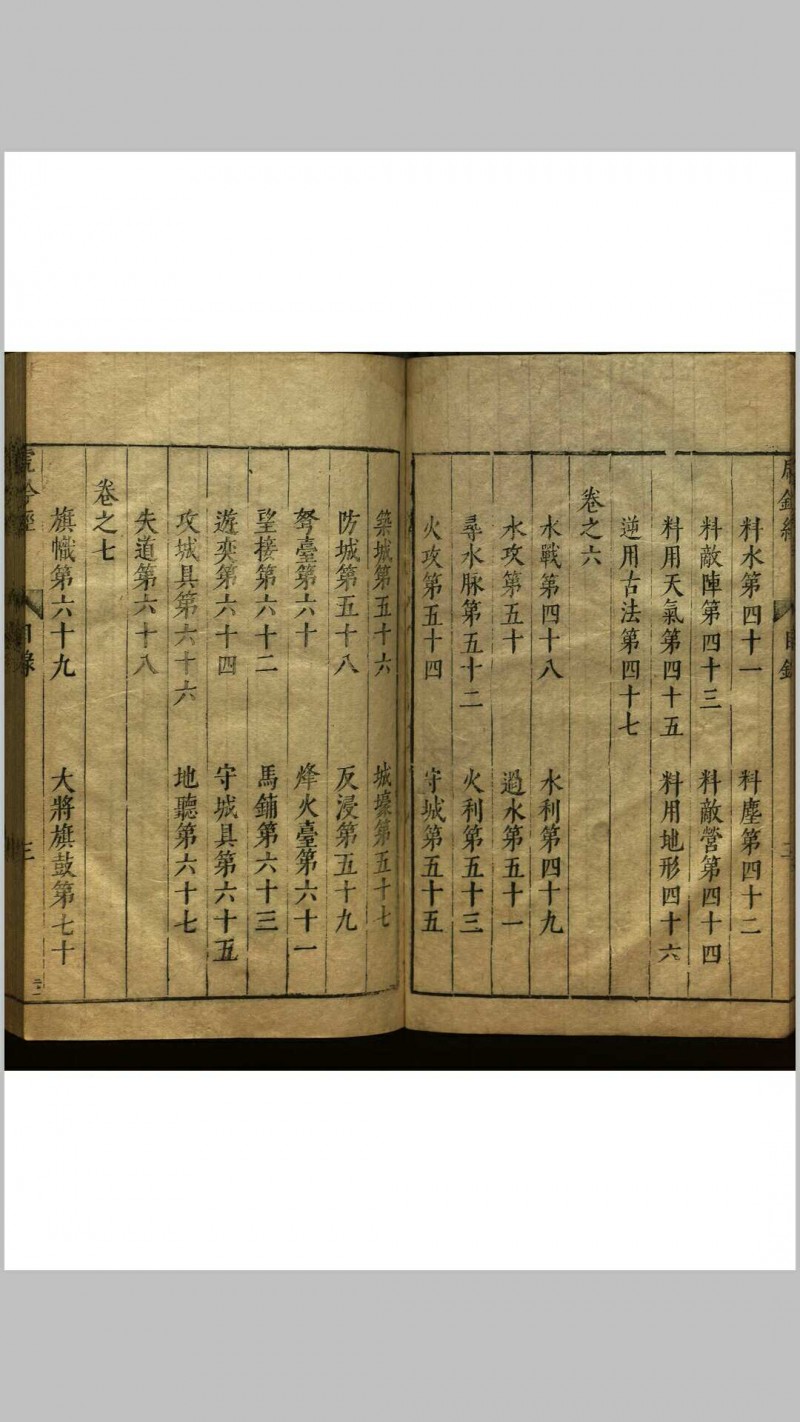 料水第四十一　料塵第四十二
料敵陣第四十三　料敵營第四十四
料用天氣第四十五　料用地形四十六
逆用古法第四十七
卷之六
水戰第四十八　水利第四十九
水攻第五十　過水第五十一
尋水脉第五十二　火利第五十三
火攻第五十四　守城第五十五
築城第五十六　城壕第五十七
防城第五十八　反浸第五十九
弩臺第六十　烽火臺第六十一
望接第六十二　馬鋪第六十三
遊奕第六十四　守城具第六十五
攻城具第六十六　地聽第六十七
失道第六十八
卷之七
旗幟第六十九　大將旗鼓第七十
目錄　三